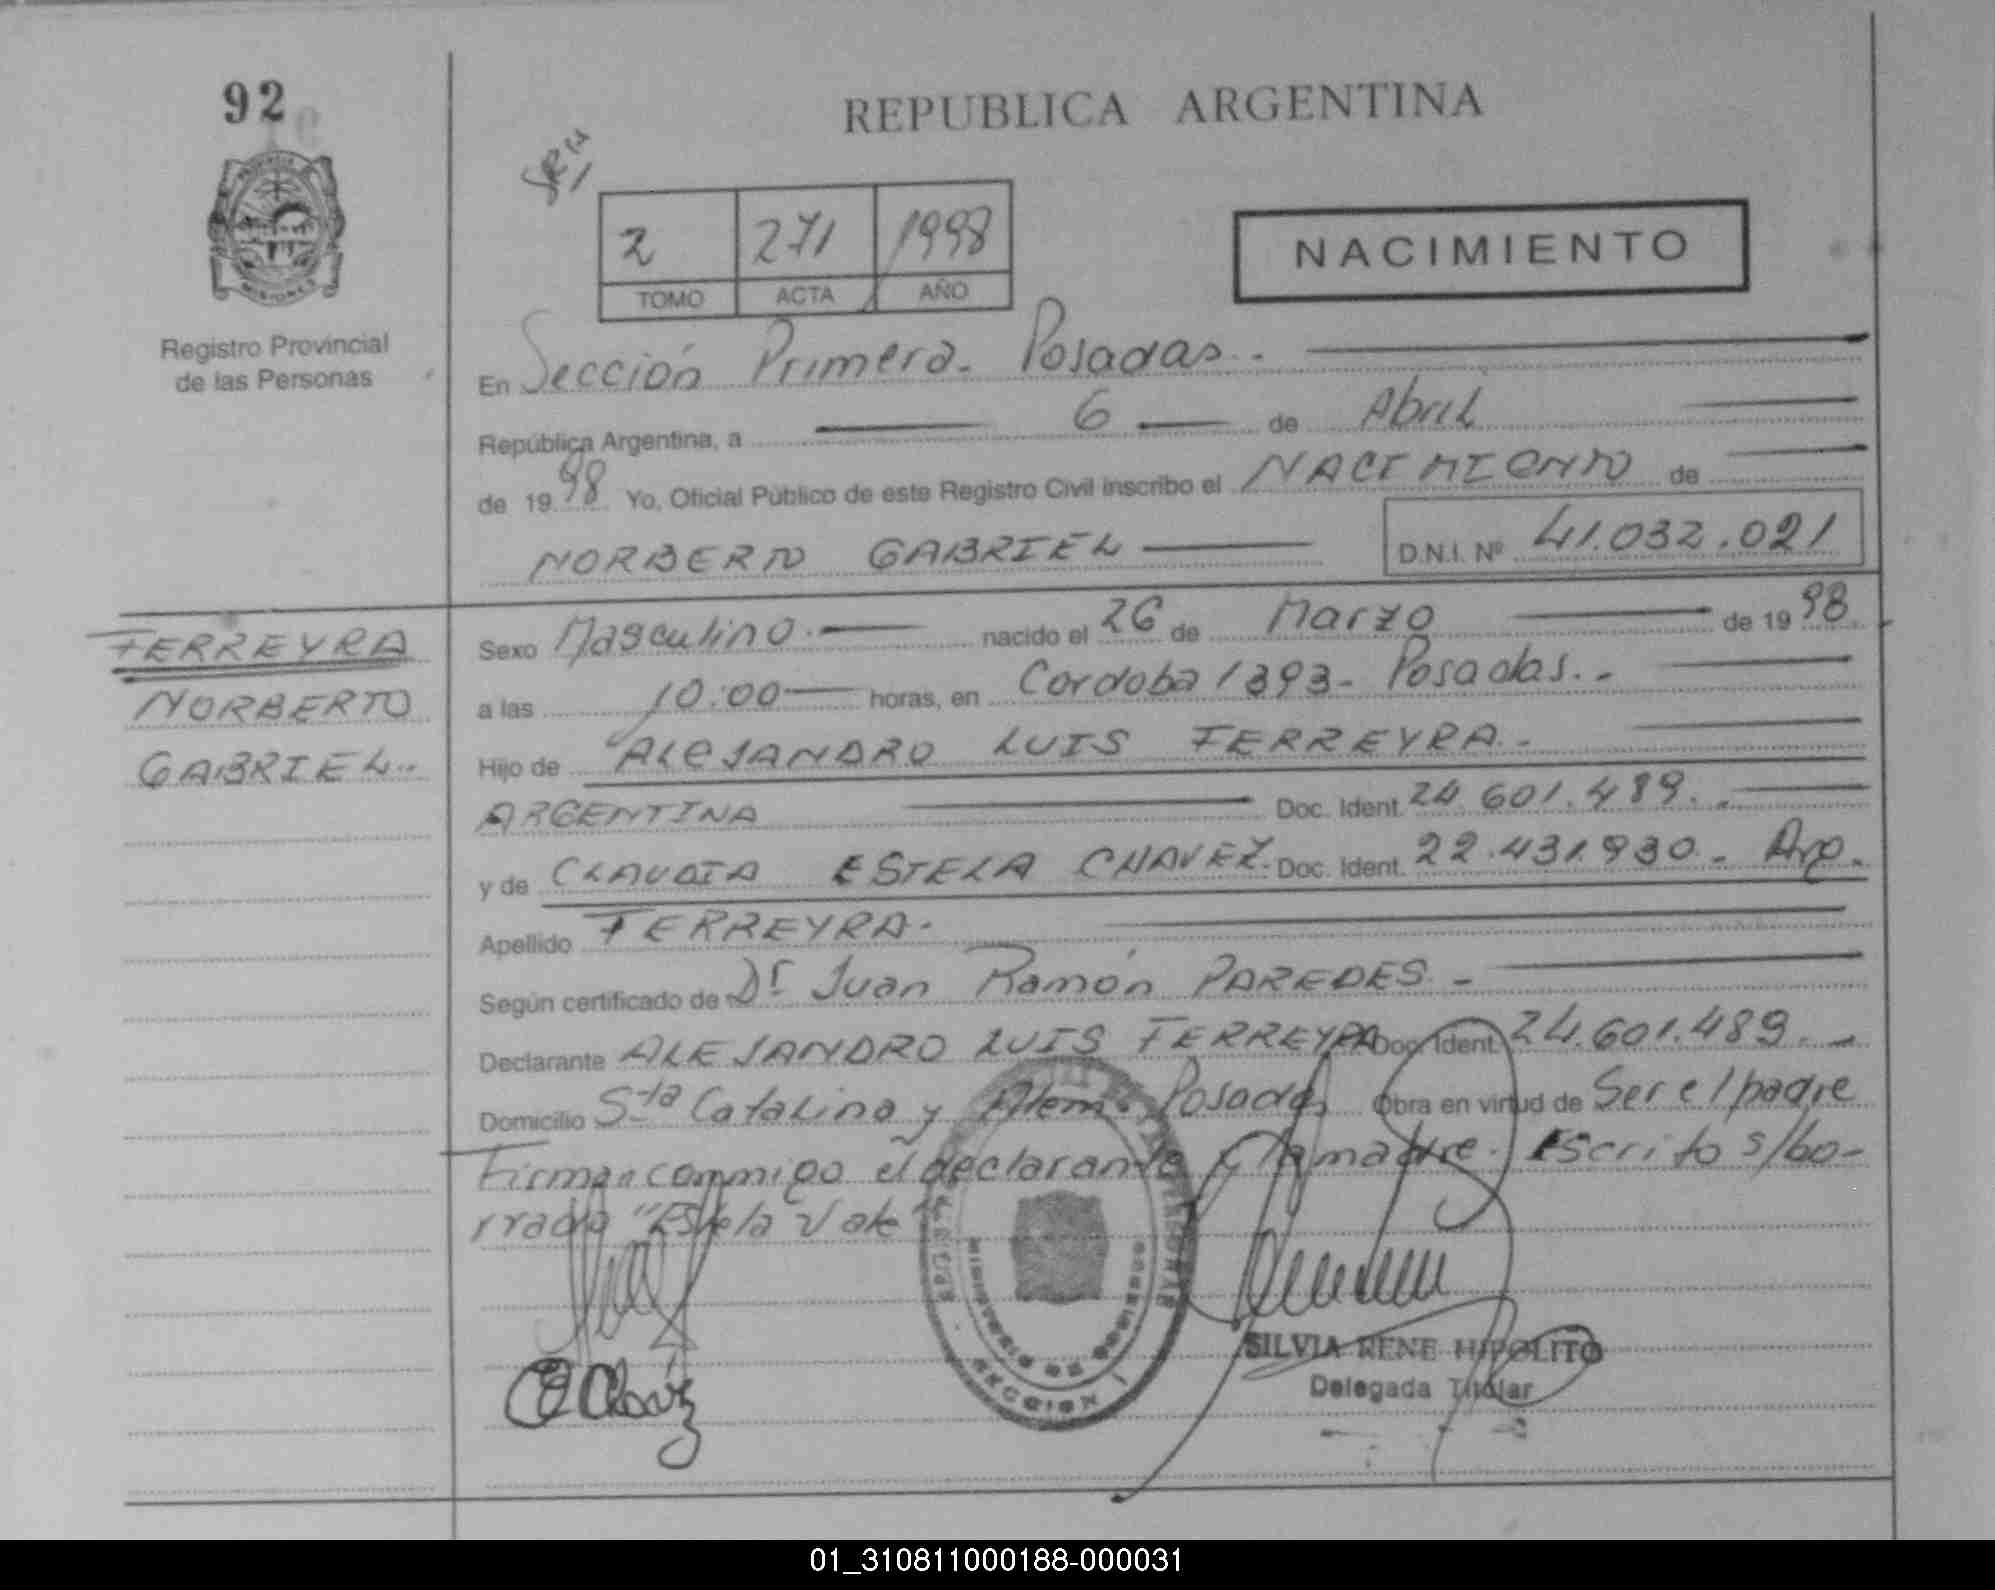 92
REPUBLICA ARGENTINA
2 271 1998
TOMO ACTA AÑO
NACIMIENTO
MISIONES
Registro Provincial
de las Personas
En Sección Primera. Posadas.-
República Argentina, a 6 de Abril
de 1998 Yo, Oficial Público de este Registro Civil inscribo el NACIMIENTO de
NORBERTO GABRIEL D.N.I. Nº 41.032.021
FERREYRA
NORBERTO
GABRIEL.-
Sexo Masculino.- nacido el 26 de Marzo de 1998.
a las 10:00 horas, en Cordoba 1393- Posadas.-
Hijo de ALEJANDRO LUIS FERREYRA.-
ARGENTINA Doc. Ident. 24.601.489.-
y de CLAUDIA ESTELA CHAVEZ. Doc. Ident. 22.431.930.- Arg.
Apellido FERREYRA.
Según certificado de Dr Juan Ramón PAREDES.-
Declarante ALEJANDRO LUIS FERREYRA Doc. Ident. 24.601.489.-
Domicilio Sta Catalina y Alem. Posadas Obra en virtud de Ser el padre
Firman conmigo el declarante y la madre. Escrito s/bo-
rrado "Estela Vale"
MINISTERIO DE GOBIERNO
SECCION 1
SILVIA RENE HIPOLITO
Delegada Titular
01_310811000188-000031